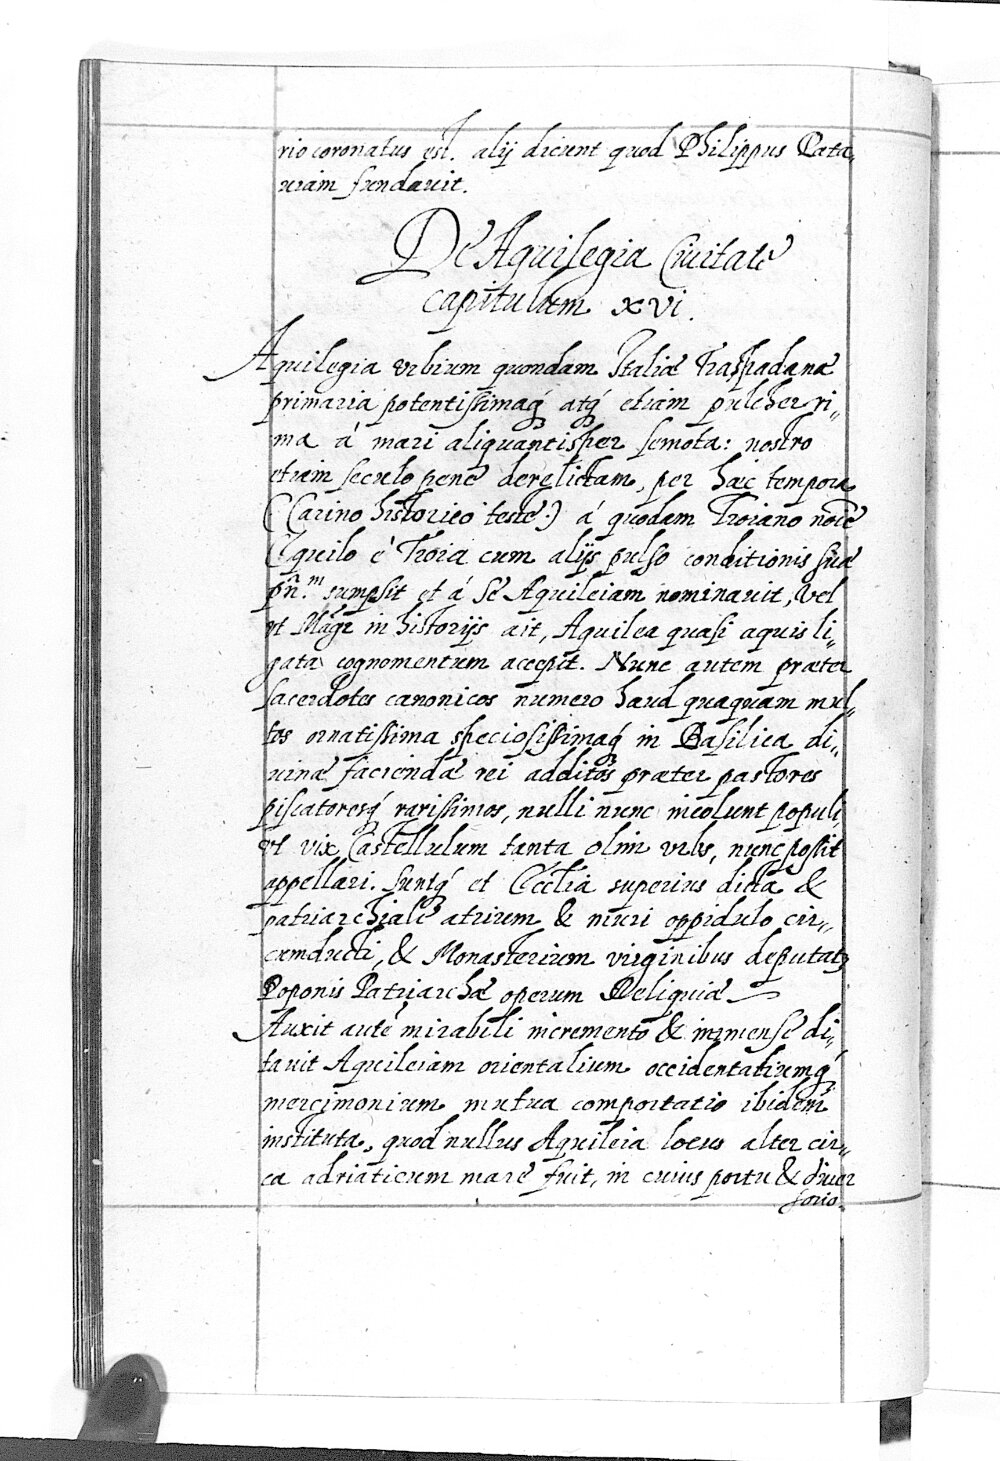 rio coronatus est. alij dicunt quod Philippus Pata,,
uiam fundauit.
De Aquilegia Ciuitate
capitulum xvi.
Aquilegia vrbium quondam Italiæ Traspadanæ
primaria potentissimaq́ atq́ etiam pulcherri,,
ma á mari aliquantisper semota: nostro
etiam seculo pene derelictam, per hæc tempora
(Clarino historico teste.) á quodam Troiano noīe
Aquilo é Troia cum alijs pulso conditionis suæ
pn̄.m sumpsit et á se Aquileiam nominauit, vel
vt Magr in historijs ait, Aquilea quasi aquis li,,
gata cognomentum accepit. Nunc autem præter
sacerdotes canonicos numero haud quaquam mul,,
tos ornatissima speciosissimaq́ in Basilica di,,
uinæ faciendæ rei additos præter pastores
piscatoresq́ rarissimos, nulli nunc incolunt populi,
vt vix Castellulum tanta olim vrbs, nunc possit
appellari. suntq́ et Ecclia superius dicta &
patriarchiale atrium & muri oppidulo cir,,
cumducti, & Monasterium virginibus deputatȝ
Poponis Patriarchæ operum Reliquiæ
Auxit autē mirabili incremento & immense di,,
tauit Aquileiam orientalium occidentaliumq́
mercimonium mutua comportatio ibidem
instituta, quod nullus Aquileia locus alter cir,,
ca adriaticum mare fuit, in cuius portu & diuer
sorio.